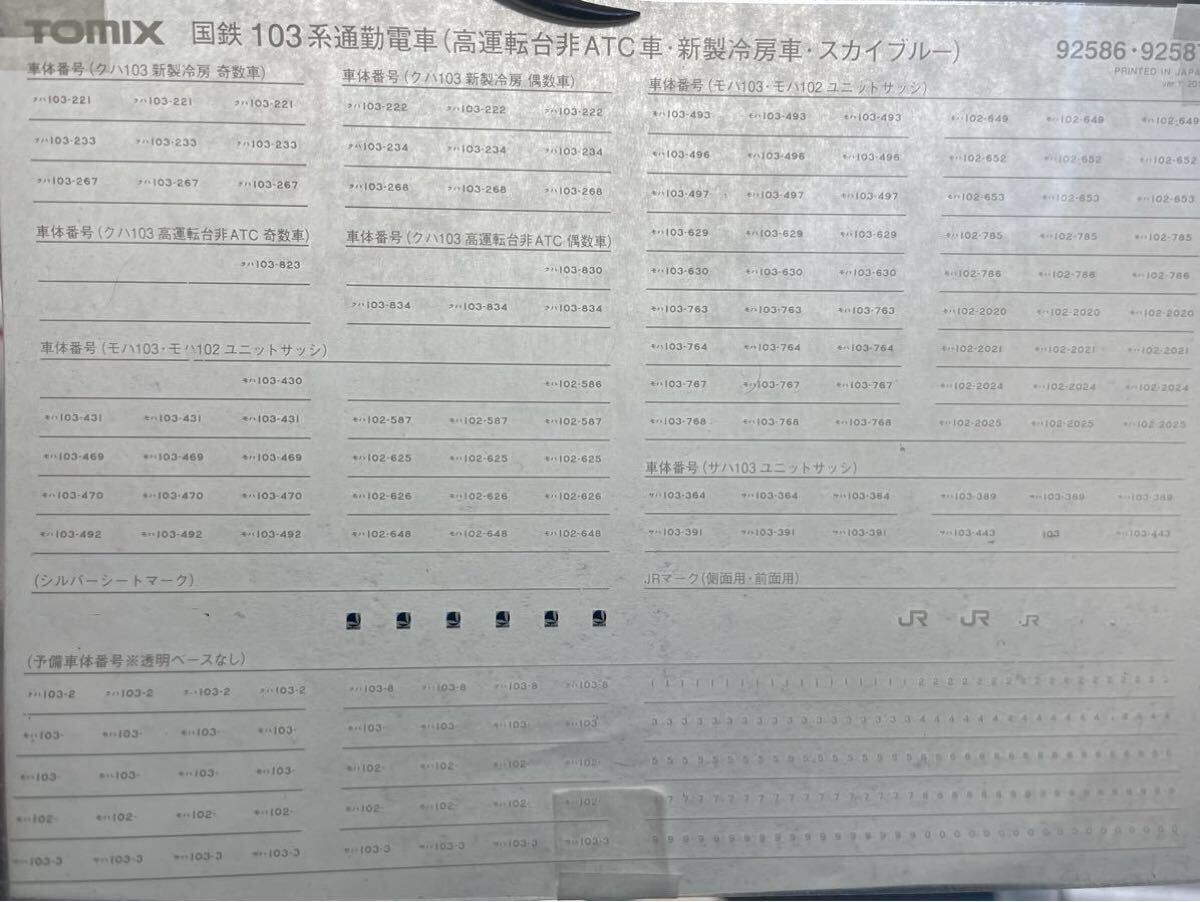 TOMIX 国鉄 103系通勤電車(高運転台非ATC車・新製冷房車・スカイブルー) 92586・9258
PRINTED IN JAPA
車体番号(クハ103 新製冷房 奇数車)
クハ103-221 クハ103-221 クハ103-221
クハ103-233 クハ103-233 クハ103-233
クハ103-267 クハ103-267 クハ103-267
車体番号(クハ103 高運転台非ATC 奇数車)
クハ103-823
車体番号(クハ103 新製冷房 偶数車)
クハ103-222 クハ103-222 クハ103-222
クハ103-234 クハ103-234 クハ103-234
クハ103-268 クハ103-268 クハ103-268
車体番号(クハ103 高運転台非ATC 偶数車)
クハ103-830
クハ103-834 クハ103-834 クハ103-834
車体番号(モハ103・モハ102 ユニットサッシ)
モハ103-430 モハ102-586
モハ103-431 モハ103-431 モハ103-431 モハ102-587 モハ102-587 モハ102-587
モハ103-469 モハ103-469 モハ103-469 モハ102-625 モハ102-625 モハ102-625
モハ103-470 モハ103-470 モハ103-470 モハ102-626 モハ102-626 モハ102-626
モハ103-492 モハ103-492 モハ103-492 モハ102-648 モハ102-648 モハ102-648
車体番号(モハ103・モハ102 ユニットサッシ)
モハ103-493 モハ103-493 モハ103-493 モハ102-649 モハ102-649 モハ102-649
モハ103-496 モハ103-496 モハ103-496 モハ102-652 モハ102-652 モハ102-652
モハ103-497 モハ103-497 モハ103-497 モハ102-653 モハ102-653 モハ102-653
モハ103-629 モハ103-629 モハ103-629 モハ102-785 モハ102-785 モハ102-785
モハ103-630 モハ103-630 モハ103-630 モハ102-786 モハ102-786 モハ102-786
モハ103-763 モハ103-763 モハ103-763 モハ102-2020 モハ102-2020 モハ102-2020
モハ103-764 モハ103-764 モハ103-764 モハ102-2021 モハ102-2021 モハ102-2021
モハ103-767 モハ103-767 モハ103-767 モハ102-2024 モハ102-2024 モハ102-2024
モハ103-768 モハ103-768 モハ103-768 モハ102-2025 モハ102-2025 モハ102-2025
車体番号(サハ103 ユニットサッシ)
サハ103-364 サハ103-364 サハ103-364 サハ103-389 サハ103-389 サハ103-389
サハ103-391 サハ103-391 サハ103-391 サハ103-443 103 サハ103-443
(シルバーシートマーク)
JRマーク(側面用・前面用)
JR JR JR
(予備車体番号※透明ベースなし)
クハ103-2 クハ103-2 クハ103-2 クハ103-2 クハ103-8 クハ103-8 クハ103-8 クハ103-8
モハ103- モハ103- モハ103- モハ103- モハ103- モハ103- モハ103- モハ103
モハ103- モハ103- モハ103- モハ103- モハ102- モハ102- モハ102- モハ102-
モハ102- モハ102- モハ102- モハ102- モハ102- モハ102- モハ102- モハ102-
サハ103-3 サハ103-3 サハ103-3 サハ103-3 サハ103-3 サハ103-3 サハ103-3 サハ103-3